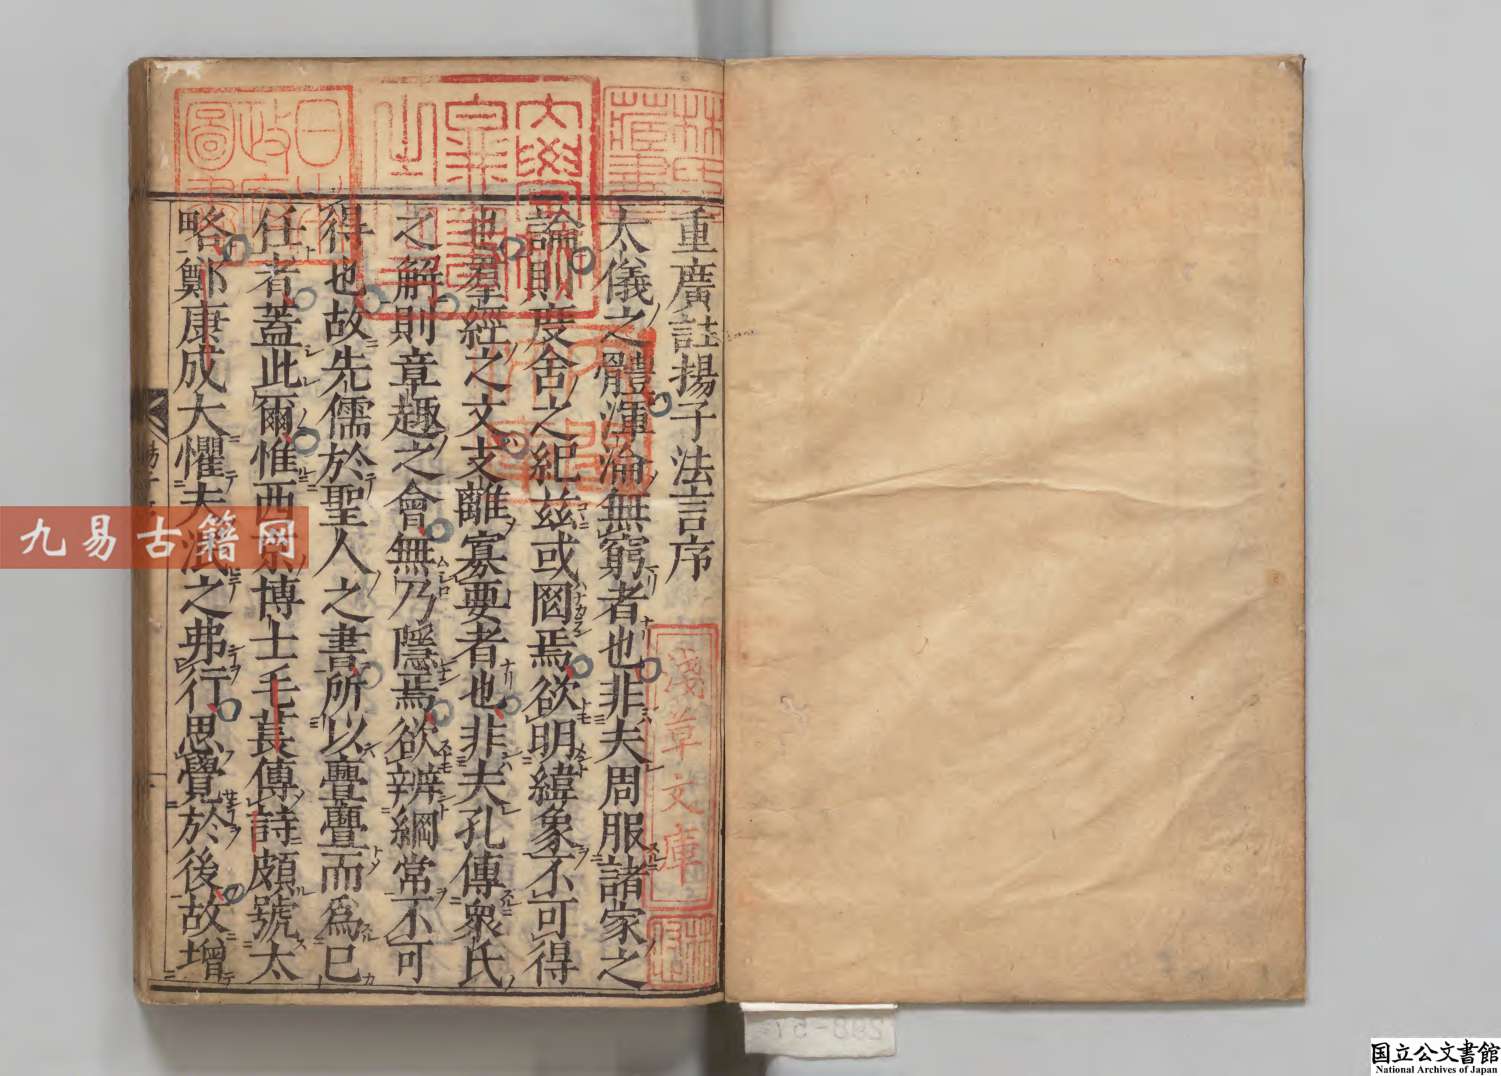 重廣註揚子法言序
太儀之體渾淪無窮者也非夫周服諸家之
論則度舍之紀茲或罔焉欲明緯象不可得
也羣經之文支離寡要者也非夫孔傳衆氏
之解則章趣之會無乃隱焉欲辨綱常不可
得也故先儒於聖人之書所以亹亹而爲已
任者蓋此爾惟西京博士毛萇傳詩頗號太
略鄭康成大懼夫泯之弗行思覺於後故增
林氏藏書
日本政府圖書
淺草文庫
九易古籍网
国立公文書館
National Archives of Japan